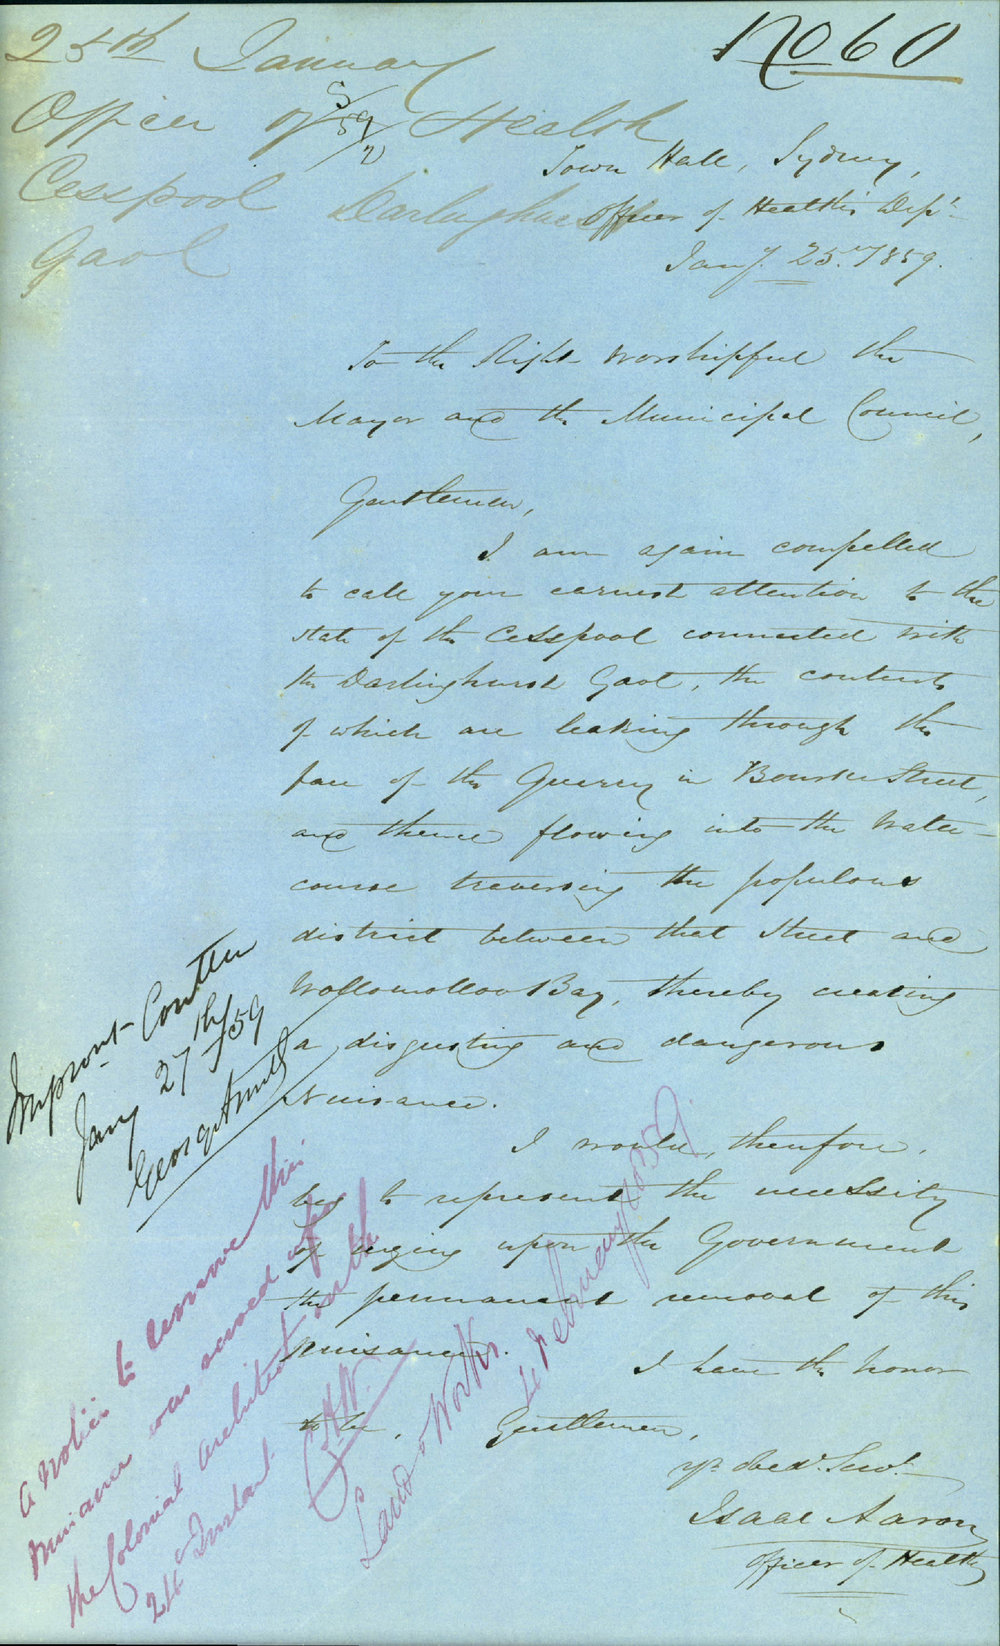 25th January
No 60
Officer of Health
Cesspool Darlinghurst
Gaol
Town Hall, Sydney,
Officer of Health's Dept.
Jany. 25th 1859.
To the Right Worshipful the
Mayor and the Municipal Council,
Gentlemen,
I am again compelled
to call your earnest attention to the
state of the Cesspool connected with
the Darlinghurst Gaol, the contents
of which are leaking through the
face of the Quarry in Bourke Street,
and thence flowing into the Water-
course traversing the populous
district between that Street and
Wolloomolloo Bay, thereby creating
a disgusting and dangerous
Nuisance.
I would, therefore,
beg to represent the necessity
of urging upon the Government
the permanent removal of this
nuisance.
I have the honor
to be, Gentlemen,
yr. Obedt. Servt.
Isaac Aaron
Officer of Health
Improvt Comttee
Jany 27th /59
George Smith
A Notice to remove this
Nuisance was served upon
the Colonial Architect
Instant
Land & Works
February 1859